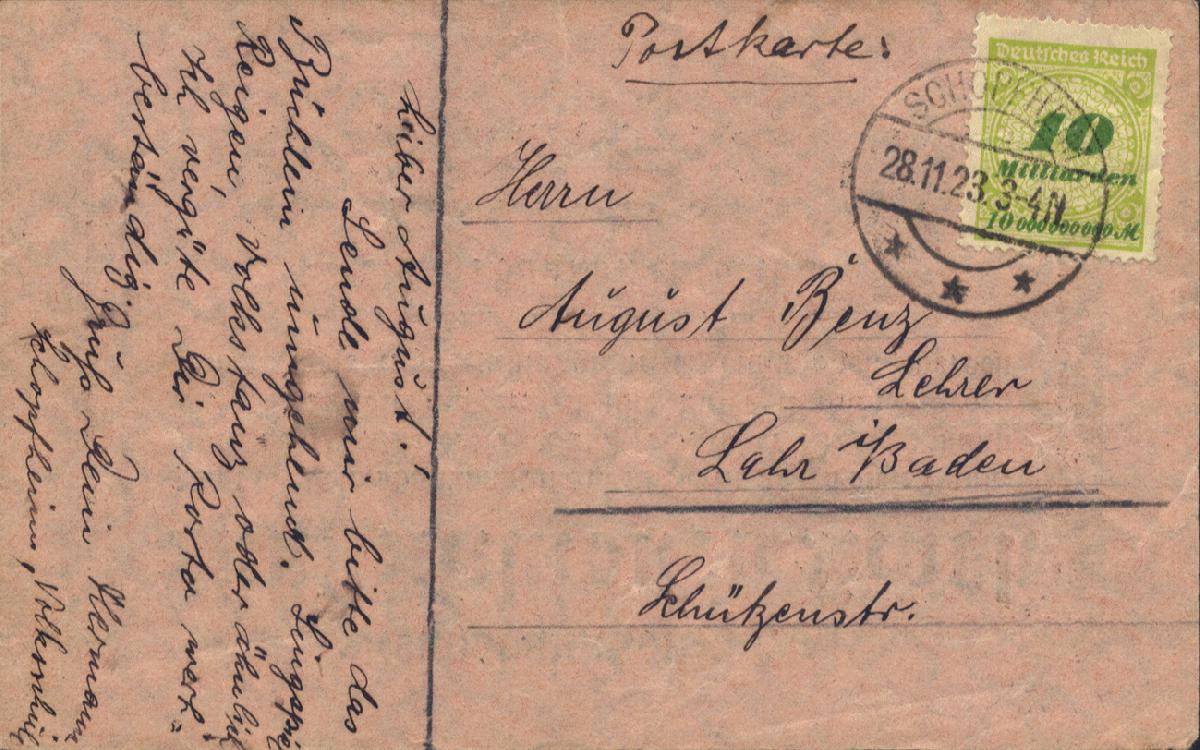 Postkarte:
Deutsches Reich
10
Milliarden
10 000000000 M
SCHOPFH
28.11.23. 3-4N
Herrn
August Benz
Lehrer
Lahr i/Baden
Schützenstr.
Lieber August!
Sende mir bitte das
Büchlein umgehend.
Reigen, Volkstanz oder ähnlich
Ich vergüte Dir Porto
beständig.
Gruß Dein Hermann
Schopfheim,